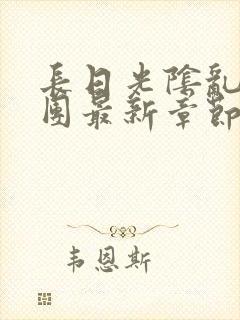 長日光陰亂
圍最新章節
韦恩斯